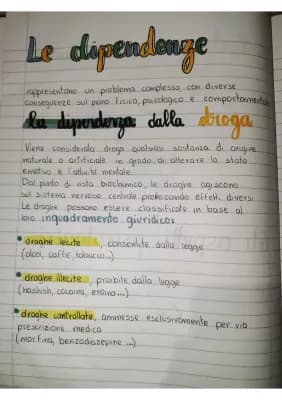 Le dipendenze
rappresentano un problema complesso, con diverse
conseguenze sul piano fisico, psicologico e comportamentale
La dipendenza dalla droga
Viene considerata droga qualsiasi sostanza di origine
naturale o artificiale in grado di alterare lo stato
emotivo e l'attività mentale.
Dal punto di vista biochimico, le droghe agiscono
sul sistema nervoso centrale provocando effetti diversi
Le droghe possono essere classificate in base al
loro inquadramento giuridico:
• droghe lecite, consentite dalla legge
(alcol, caffè, tabacco...)
• droghe illecite, proibite dalla legge
(hashish, cocaina, eroina...)
• droghe controllate, ammesse esclusivamente per via
prescrizione medica
(morfina, benzodiazepine ...)